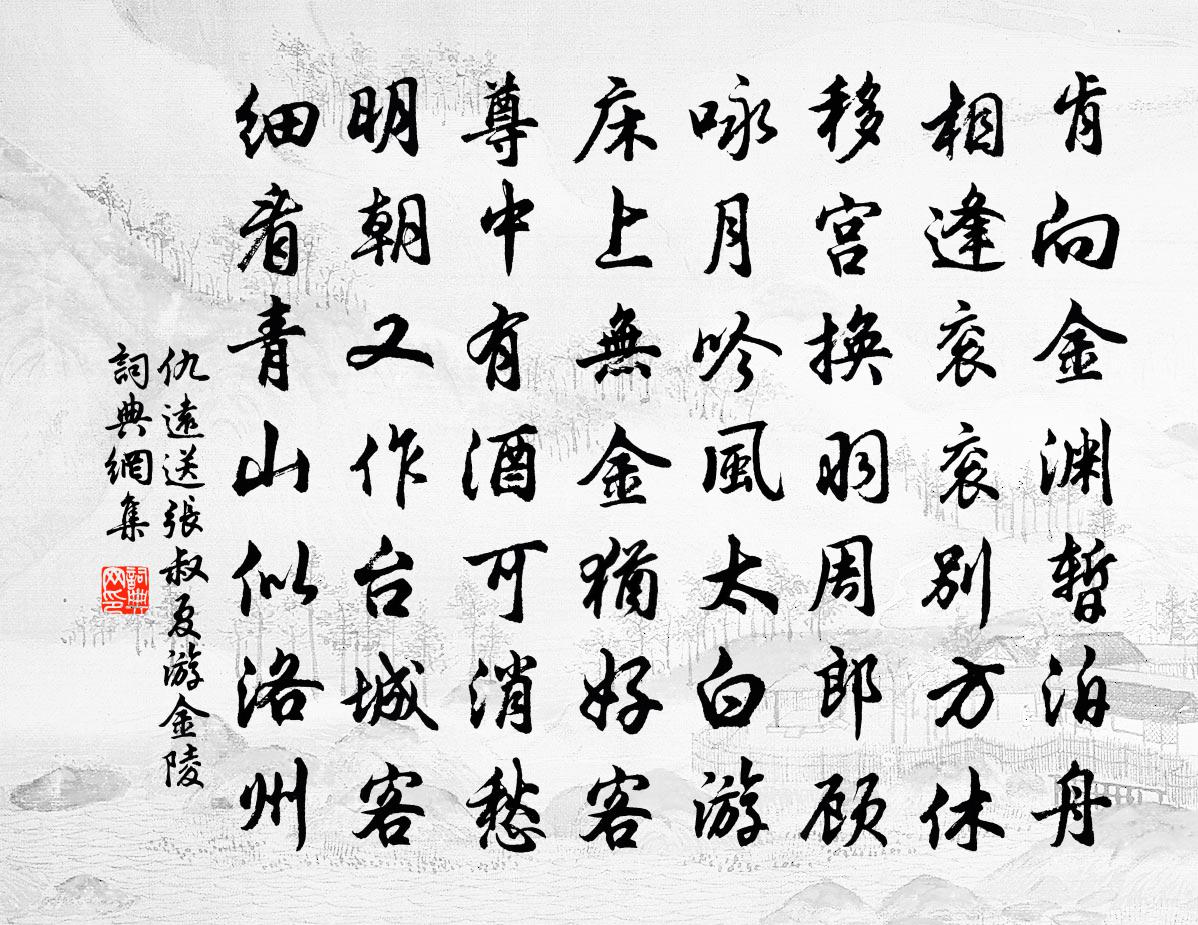 肯向金渊暫泊舟
相逢衮衮别方休
移宫換羽周郎顾
咏月吟風太白游
床上無金猶好客
尊中有酒可消愁
明朝又作台城客
细看青山似洛州
仇遠送張叔夏游金陵
詞典網集
詞典网印